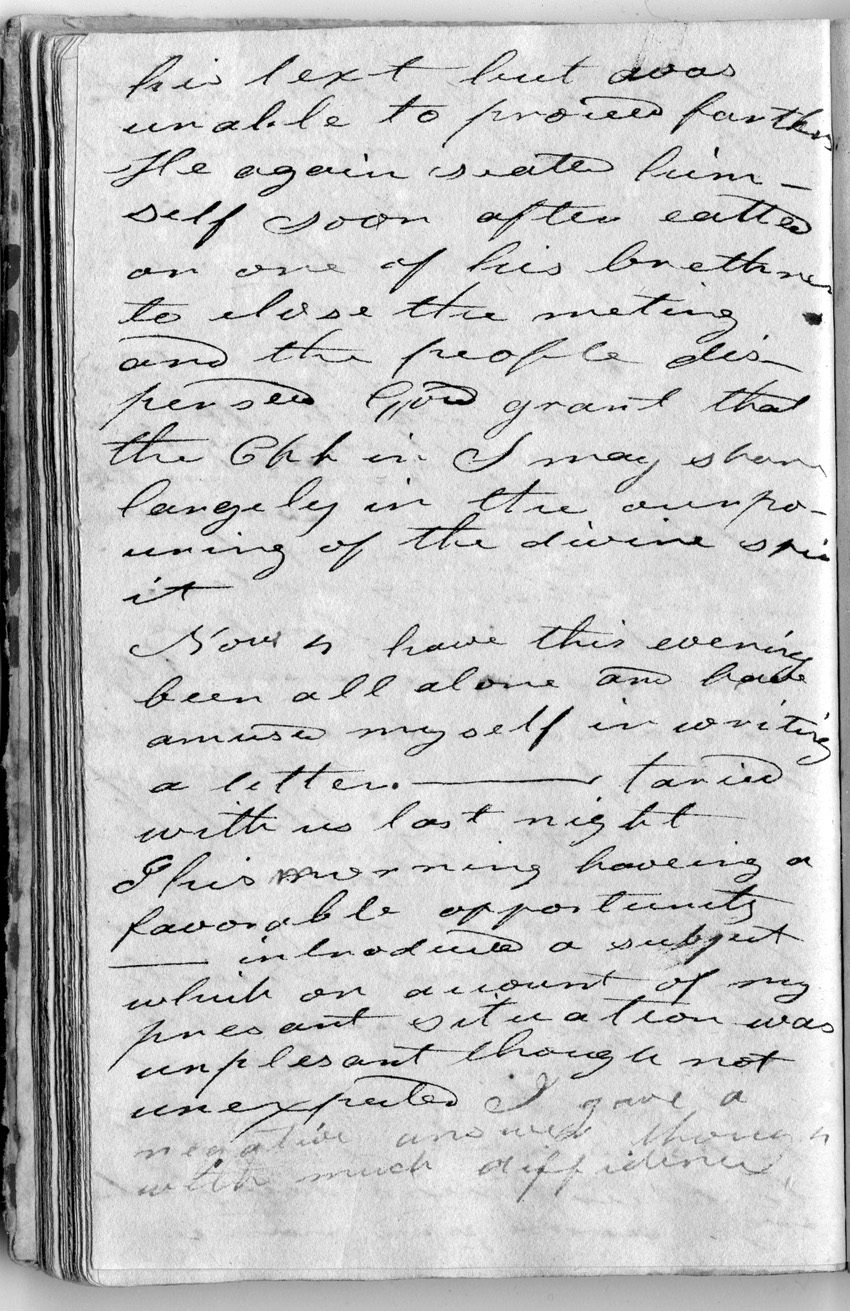 his text but was
unable to proceed farther
He again seated him-
self soon after called
on one of his brethren
to close the meting
and the people dis-
persed God grant that
the Chh in I may share
largely in the ourpo-
uring of the divine spir
it
Nov 17 have this evening
been all alone and have
amused myself in writing
a letter. ——— taried
with us last night
This morning haveing a
favorable opportunity
—— introduced a subject
which on account of my
presant situation was
unplesant though not
unexpected I gave a
negative answer though
with much diffidence